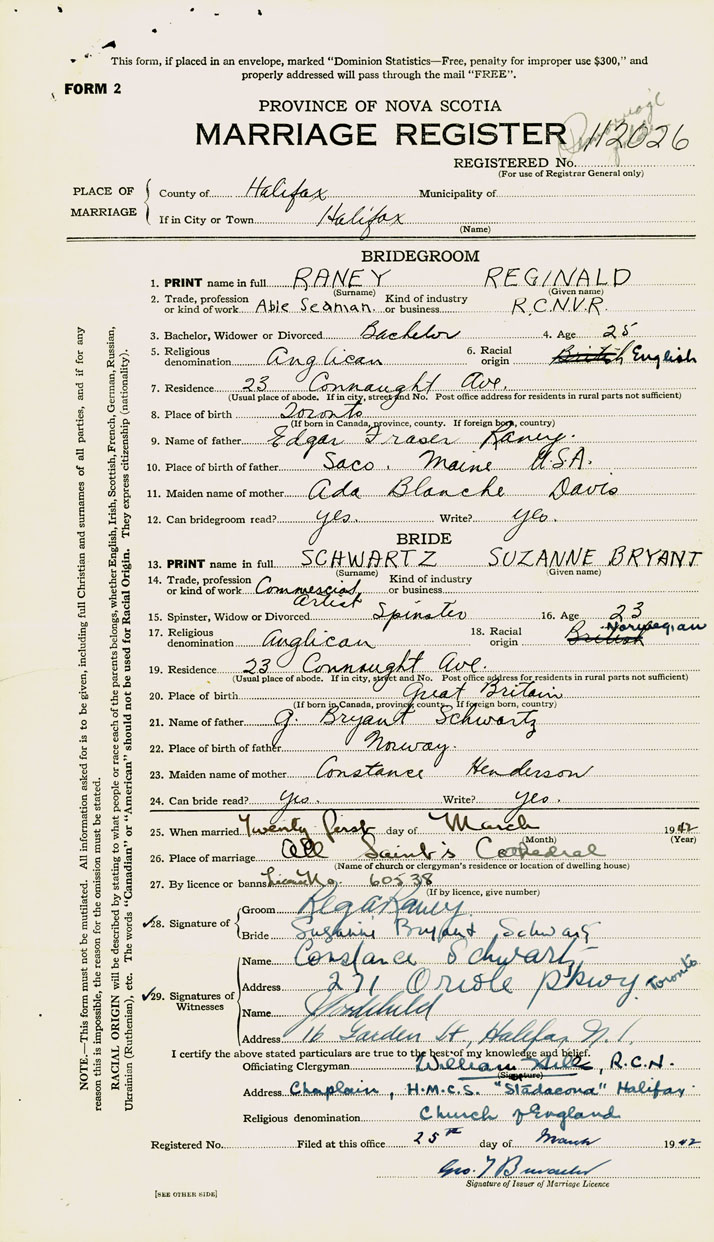 This form, if placed in an envelope, marked "Dominion Statistics—Free, penalty for improper use $300," and
properly addressed will pass through the mail "FREE".
FORM 2
PROVINCE OF NOVA SCOTIA
MARRIAGE REGISTER 112026
REGISTERED No.
(For use of Registrar General only)
PLACE OF MARRIAGE
County of Halifax Municipality of
If in City or Town Halifax
(Name)
BRIDEGROOM
1. PRINT name in full RANEY REGINALD
(Surname) (Given name)
2. Trade, profession or kind of work Able Seaman Kind of industry or business R.C.N.V.R.
3. Bachelor, Widower or Divorced Bachelor 4. Age 25
5. Religious denomination Anglican 6. Racial origin British English
7. Residence 23 Connaught Ave.
(Usual place of abode. If in city, street and No. Post office address for residents in rural parts not sufficient)
8. Place of birth Toronto
(If born in Canada, province, county. If foreign born, country)
9. Name of father Edgar Fraser Raney.
10. Place of birth of father Saco, Maine U.S.A.
11. Maiden name of mother Ada Blanche Davis
12. Can bridegroom read? yes. Write? yes.
BRIDE
13. PRINT name in full SCHWARTZ SUZANNE BRYANT
(Surname) (Given name)
14. Trade, profession or kind of work Commercial Artist Kind of industry or business
15. Spinster, Widow or Divorced Spinster 16. Age 23
17. Religious denomination Anglican 18. Racial origin British Norwegian
19. Residence 23 Connaught Ave.
(Usual place of abode. If in city, street and No. Post office address for residents in rural parts not sufficient)
20. Place of birth Great Britain
(If born in Canada, province, county. If foreign born, country)
21. Name of father G. Bryant Schwartz
22. Place of birth of father Norway.
23. Maiden name of mother Constance Henderson
24. Can bride read? yes. Write? yes.
25. When married Twenty first day of March 1942
(Month) (Year)
26. Place of marriage All Saint's Cathedral
(Name of church or clergyman's residence or location of dwelling house)
27. By licence or banns 60538
(If by licence, give number)
28. Signature of Groom Reg Raney
Bride Suzanne Bryant Schwartz
29. Signatures of Witnesses
Name Constance Schwartz
Address 271 Oriole Pkwy. Toronto
Name
Address 16 Garden St., Halifax, N.S.
I certify the above stated particulars are true to the best of my knowledge and belief.
Officiating Clergyman William Hills, R.C.N.
(Signature)
Address Chaplain, H.M.C.S. "Stadacona" Halifax.
Religious denomination Church of England
Registered No. Filed at this office 25th day of March 1942
Geo. T
Signature of Issuer of Marriage Licence
[SEE OTHER SIDE]
NOTE.—This form must not be mutilated. All information asked for is to be given, including full Christian and surnames of all parties, and if for any
reason this is impossible, the reason for the omission must be stated.
RACIAL ORIGIN will be described by stating to what people or race each of the parents belongs, whether English, Irish, Scottish, French, German, Russian,
Ukrainian (Ruthenian), etc. The words "Canadian" or "American" should not be used for Racial Origin. They express citizenship (nationality).